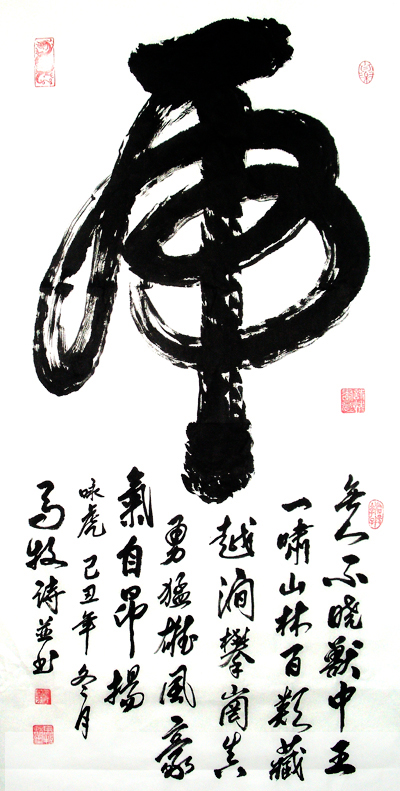 虎
无人不晓獸中王
一嘯山林百類藏
越澗攀崗真
勇猛雄風豪
氣自昂揚
咏虎 己丑年冬月
馬牧詩並书